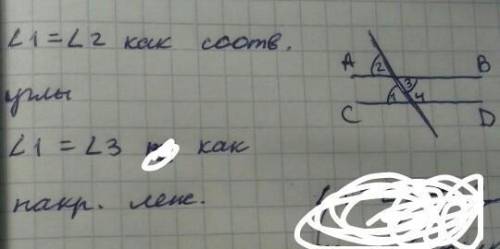 ∠1=∠2 как соотв.
углы
∠1=∠3 как
накр. леж.
A B
2
3
1 4
C D